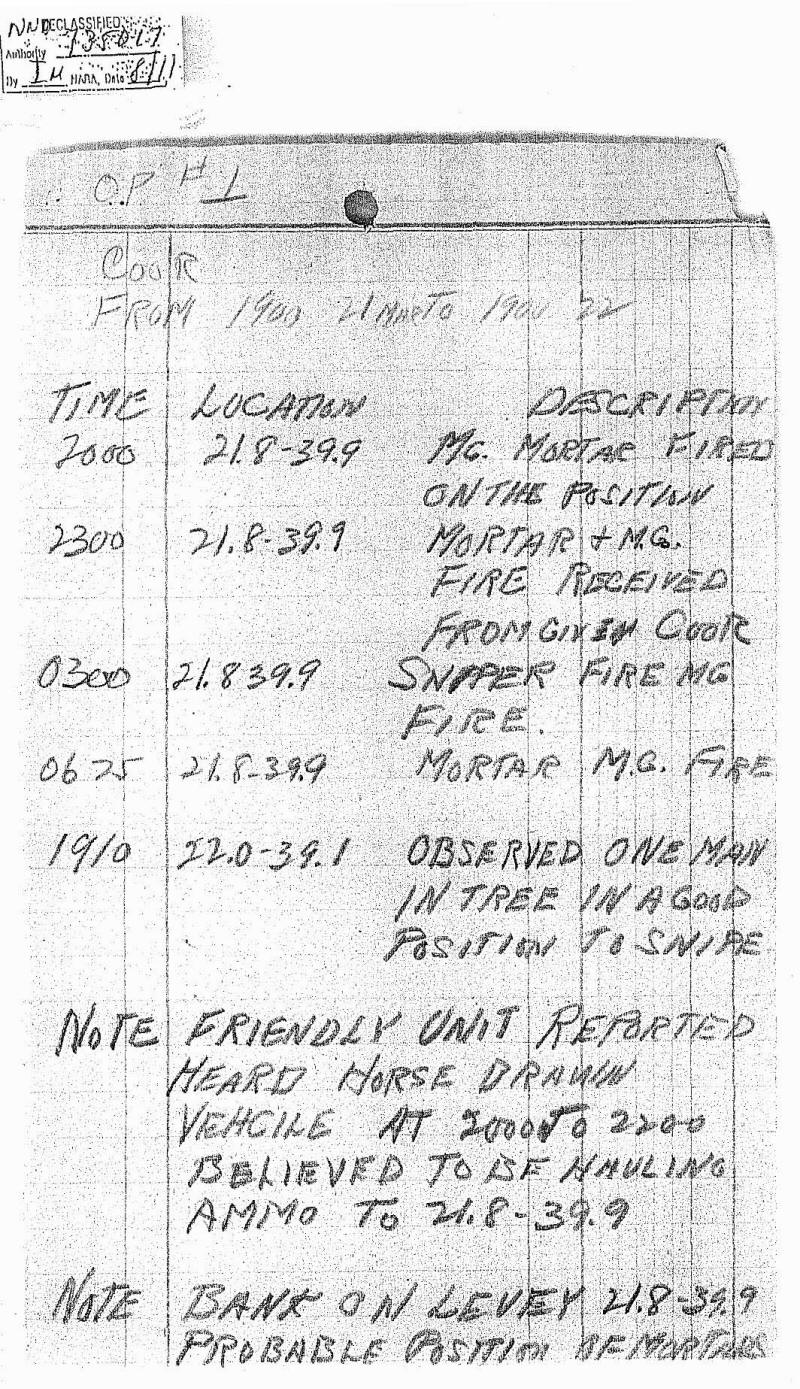 NND
DECLASSIFIED
Authority 735017
By IM NARA, Date 8/11
O.P #1
COOR
FROM 1900 21 MAR TO 1900 22
TIME LOCATION DESCRIPTION
2000 21.8-39.9 MG. MORTAR FIRED
ON THE POSITION
2300 21.8-39.9 MORTAR + M.G.
FIRE RECEIVED
FROM GIVEN COOR
0300 21.8 39.9 SNIPPER FIRE MG
FIRE.
0625 21.8-39.9 MORTAR M.G. FIRE
1910 22.0-39.1 OBSERVED ONE MAN
IN TREE IN A GOOD
POSITION TO SNIPE
NOTE FRIENDLY UNIT REPORTED
HEARD HORSE DRAWN
VEHCILE AT 2000 TO 2200
BELIEVED TO BE HAULING
AMMO TO 21.8-39.9
NOTE BANK ON LEVEY 21.8-39.9
PROBABLE POSITION OF MORTARS